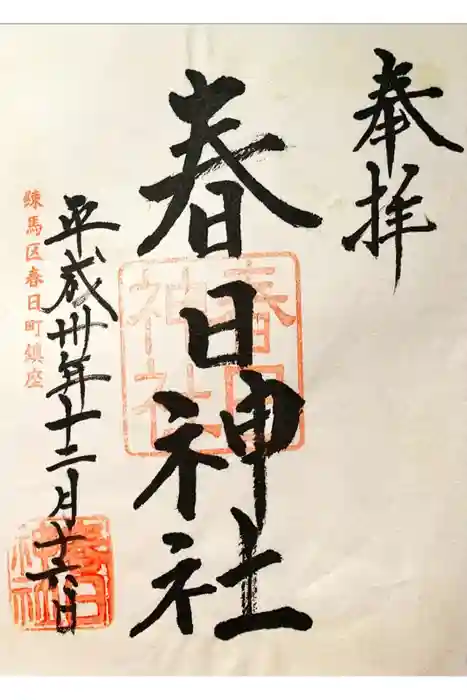 奉拝
春日神社
春日
神社
平成卅年十二月十六日
練馬区春日町鎮座
春日
神社